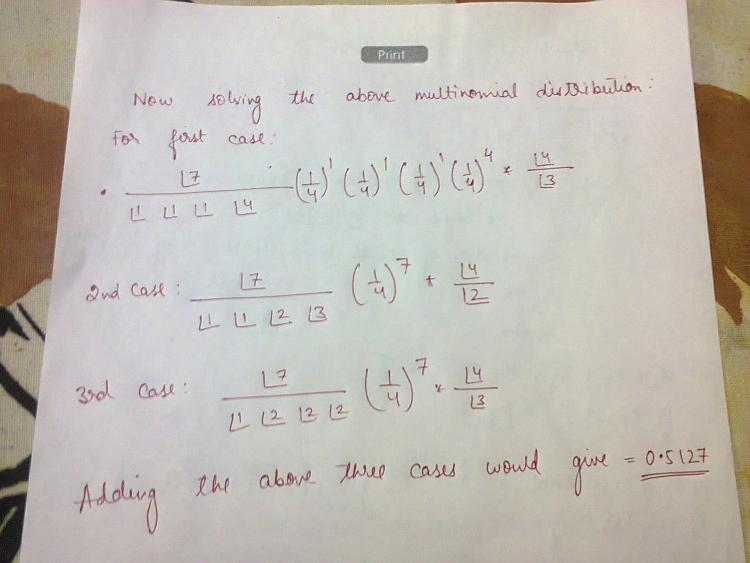 Print
Now solving the above multinomial distribution:
For first case:
• ∟7 / ∟1 ∟1 ∟1 ∟4 (1/4)^1 (1/4)^1 (1/4)^1 (1/4)^4 * ∟4 / ∟3
2nd case: ∟7 / ∟1 ∟1 ∟2 ∟3 (1/4)^7 * ∟4 / ∟2
3rd case: ∟7 / ∟1 ∟2 ∟2 ∟2 (1/4)^7 * ∟4 / ∟3
Adding the above three cases would give = 0.5127